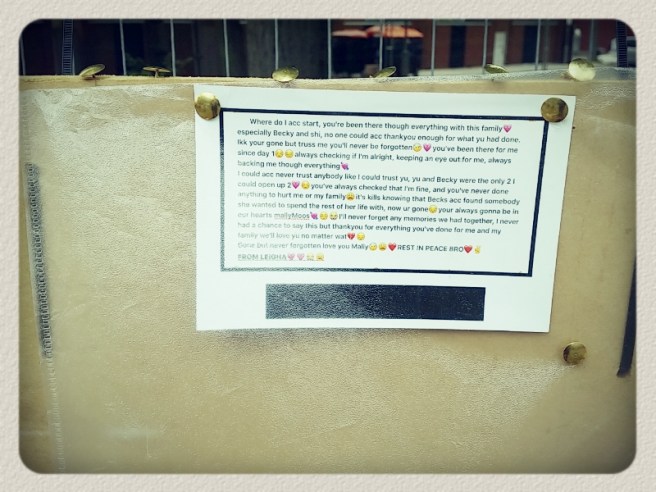 Where do I acc start, you're been there though everything with this family💗
especially Becky and shi, no one could acc thankyou enough for what yu had done.
Ikk your gone but truss me you'll never be forgotten😔💗you've been there for me
since day 1😔😔always checking if I'm alright, keeping an eye out for me, always
backing me though everything💘
I could acc never trust anybody like I could trust yu, yu and Becky were the only 2 I
could open up 2💗😔you've always checked that I'm fine, and you've never done
anything to hurt me or my family😩it's kills knowing that Becks acc found somebody
she wanted to spend the rest of her life with, now ur gone😔your always gonna be in
our hearts mallyMoos💘😔😔I'll never forget any memories we had together, I never
had a chance to say this but thankyou for everything you've done for me and my
family we'll love yu no matter wat💔😔
Gone but never forgotten love you Mally😔😩❤️REST IN PEACE BRO❤️✌️
FROM LEIGHA💗💗😔😩